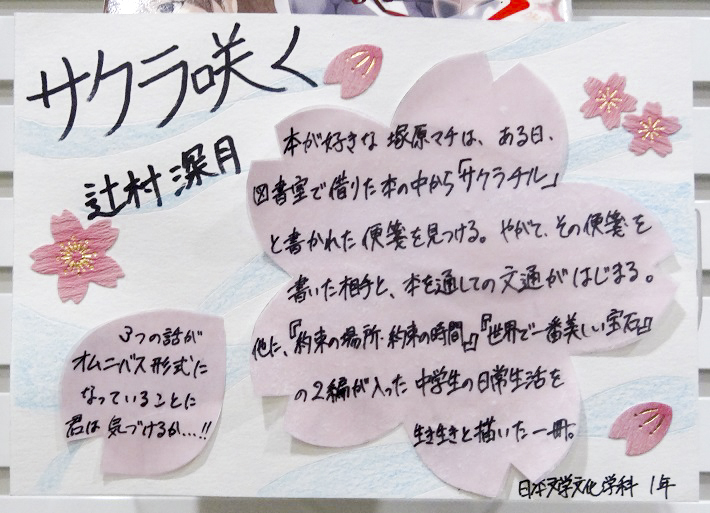 サクラ咲く
辻村深月
本が好きな塚原マチは、ある日、
図書室で借りた本の中から「サクラチル」
と書かれた便箋を見つける。やがて、その便箋を
書いた相手と、本を通しての文通がはじまる。
他に、『約束の場所・約束の時間』『世界で一番美しい宝石』
の2編が入った中学生の日常生活を
生き生きと描いた一冊。
3つの話が
オムニバス形式に
なっていることに
君は気づけるか…!!
日本文学文化学科 1年